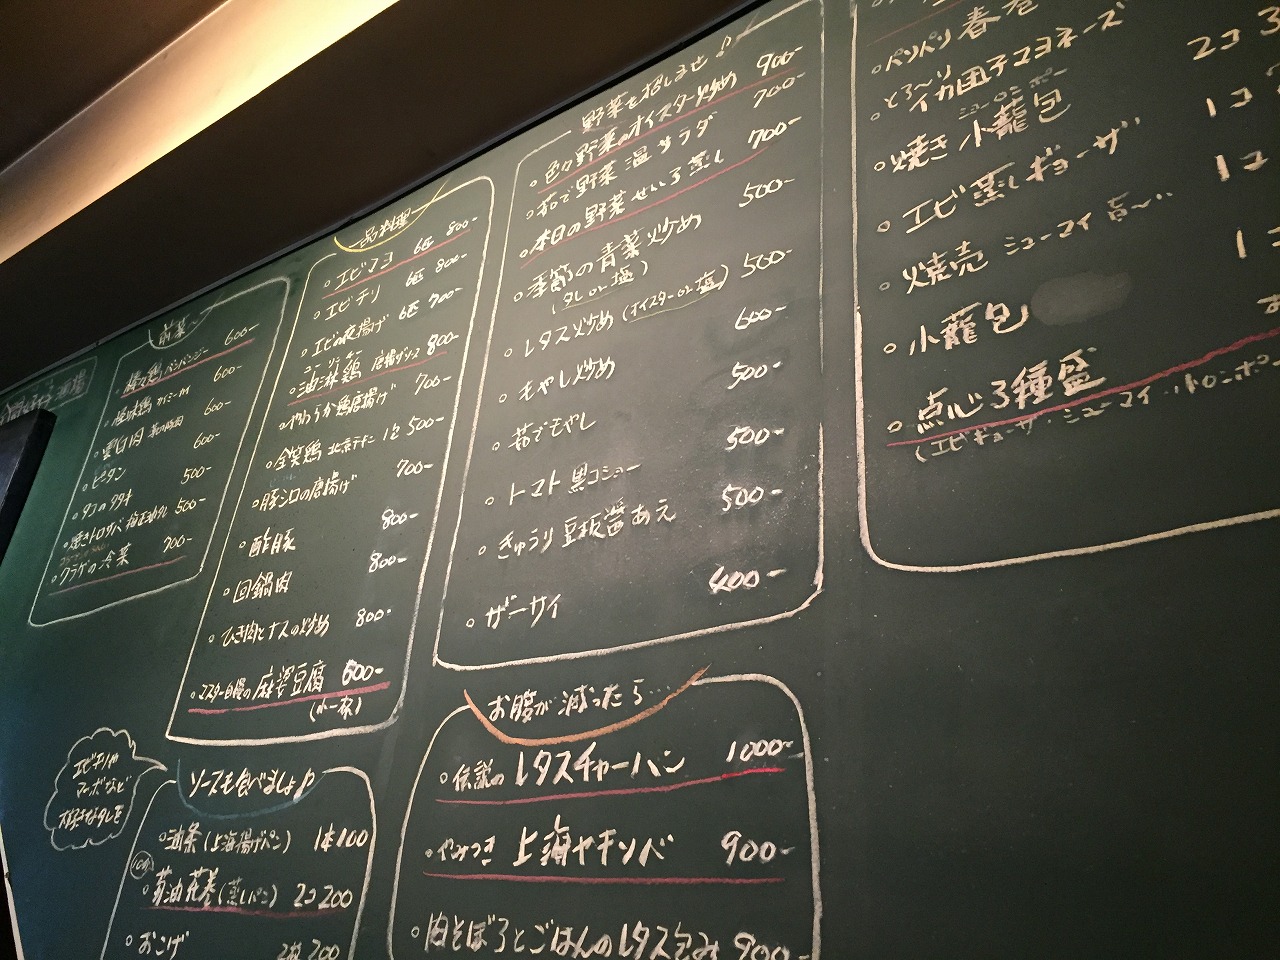 前菜
600-
600-
雲白肉
600-
ピータン
600-
タコのタタキ
500-
500-
クラゲの冷菜
700-
一品料理
エビマヨ 6匹 800-
エビチリ 6匹 800-
エビの夜揚げ 6匹 700-
油淋鶏 唐揚げソース 800-
やわらか鶏唐揚げ 700-
500-
唐揚げ 700-
酢豚 800-
回鍋肉 800-
ひき肉とナスの炒め 800-
マスター自慢の麻婆豆腐 600-
野菜も摂りませ♪
色々野菜のオイスター炒め 900-
茹で野菜 温サラダ 700-
本日の野菜せいろ蒸し 700-
季節の青菜炒め 500-
(タレor塩)
レタス炒め (オイスターor塩) 500-
もやし炒め 600-
茹でもやし 500-
トマト黒コショー 500-
きゅうり豆板醤あえ 500-
ザーサイ 400-
パリパリ春巻
とろ〜りイカ団子マヨネーズ
2コ
ショーロンポー
焼き小籠包
1コ
エビ蒸しギョーザ
1コ
焼売 シューマイ
1コ
小籠包
点心3種盛
(エビギョーザ・シューマイ・
お腹が減ったら…
伝説のレタスチャーハン 1000-
やみつき 上海ヤキソバ 900-
肉そぼろとごはんのレタス包み 900-
エビチリや
マーボなど
大好きなタレを
ソースも食べましょ♪
油条 (上海揚げパン) 1本100
花巻 (蒸しパン) 2コ200
おこげ 2枚200